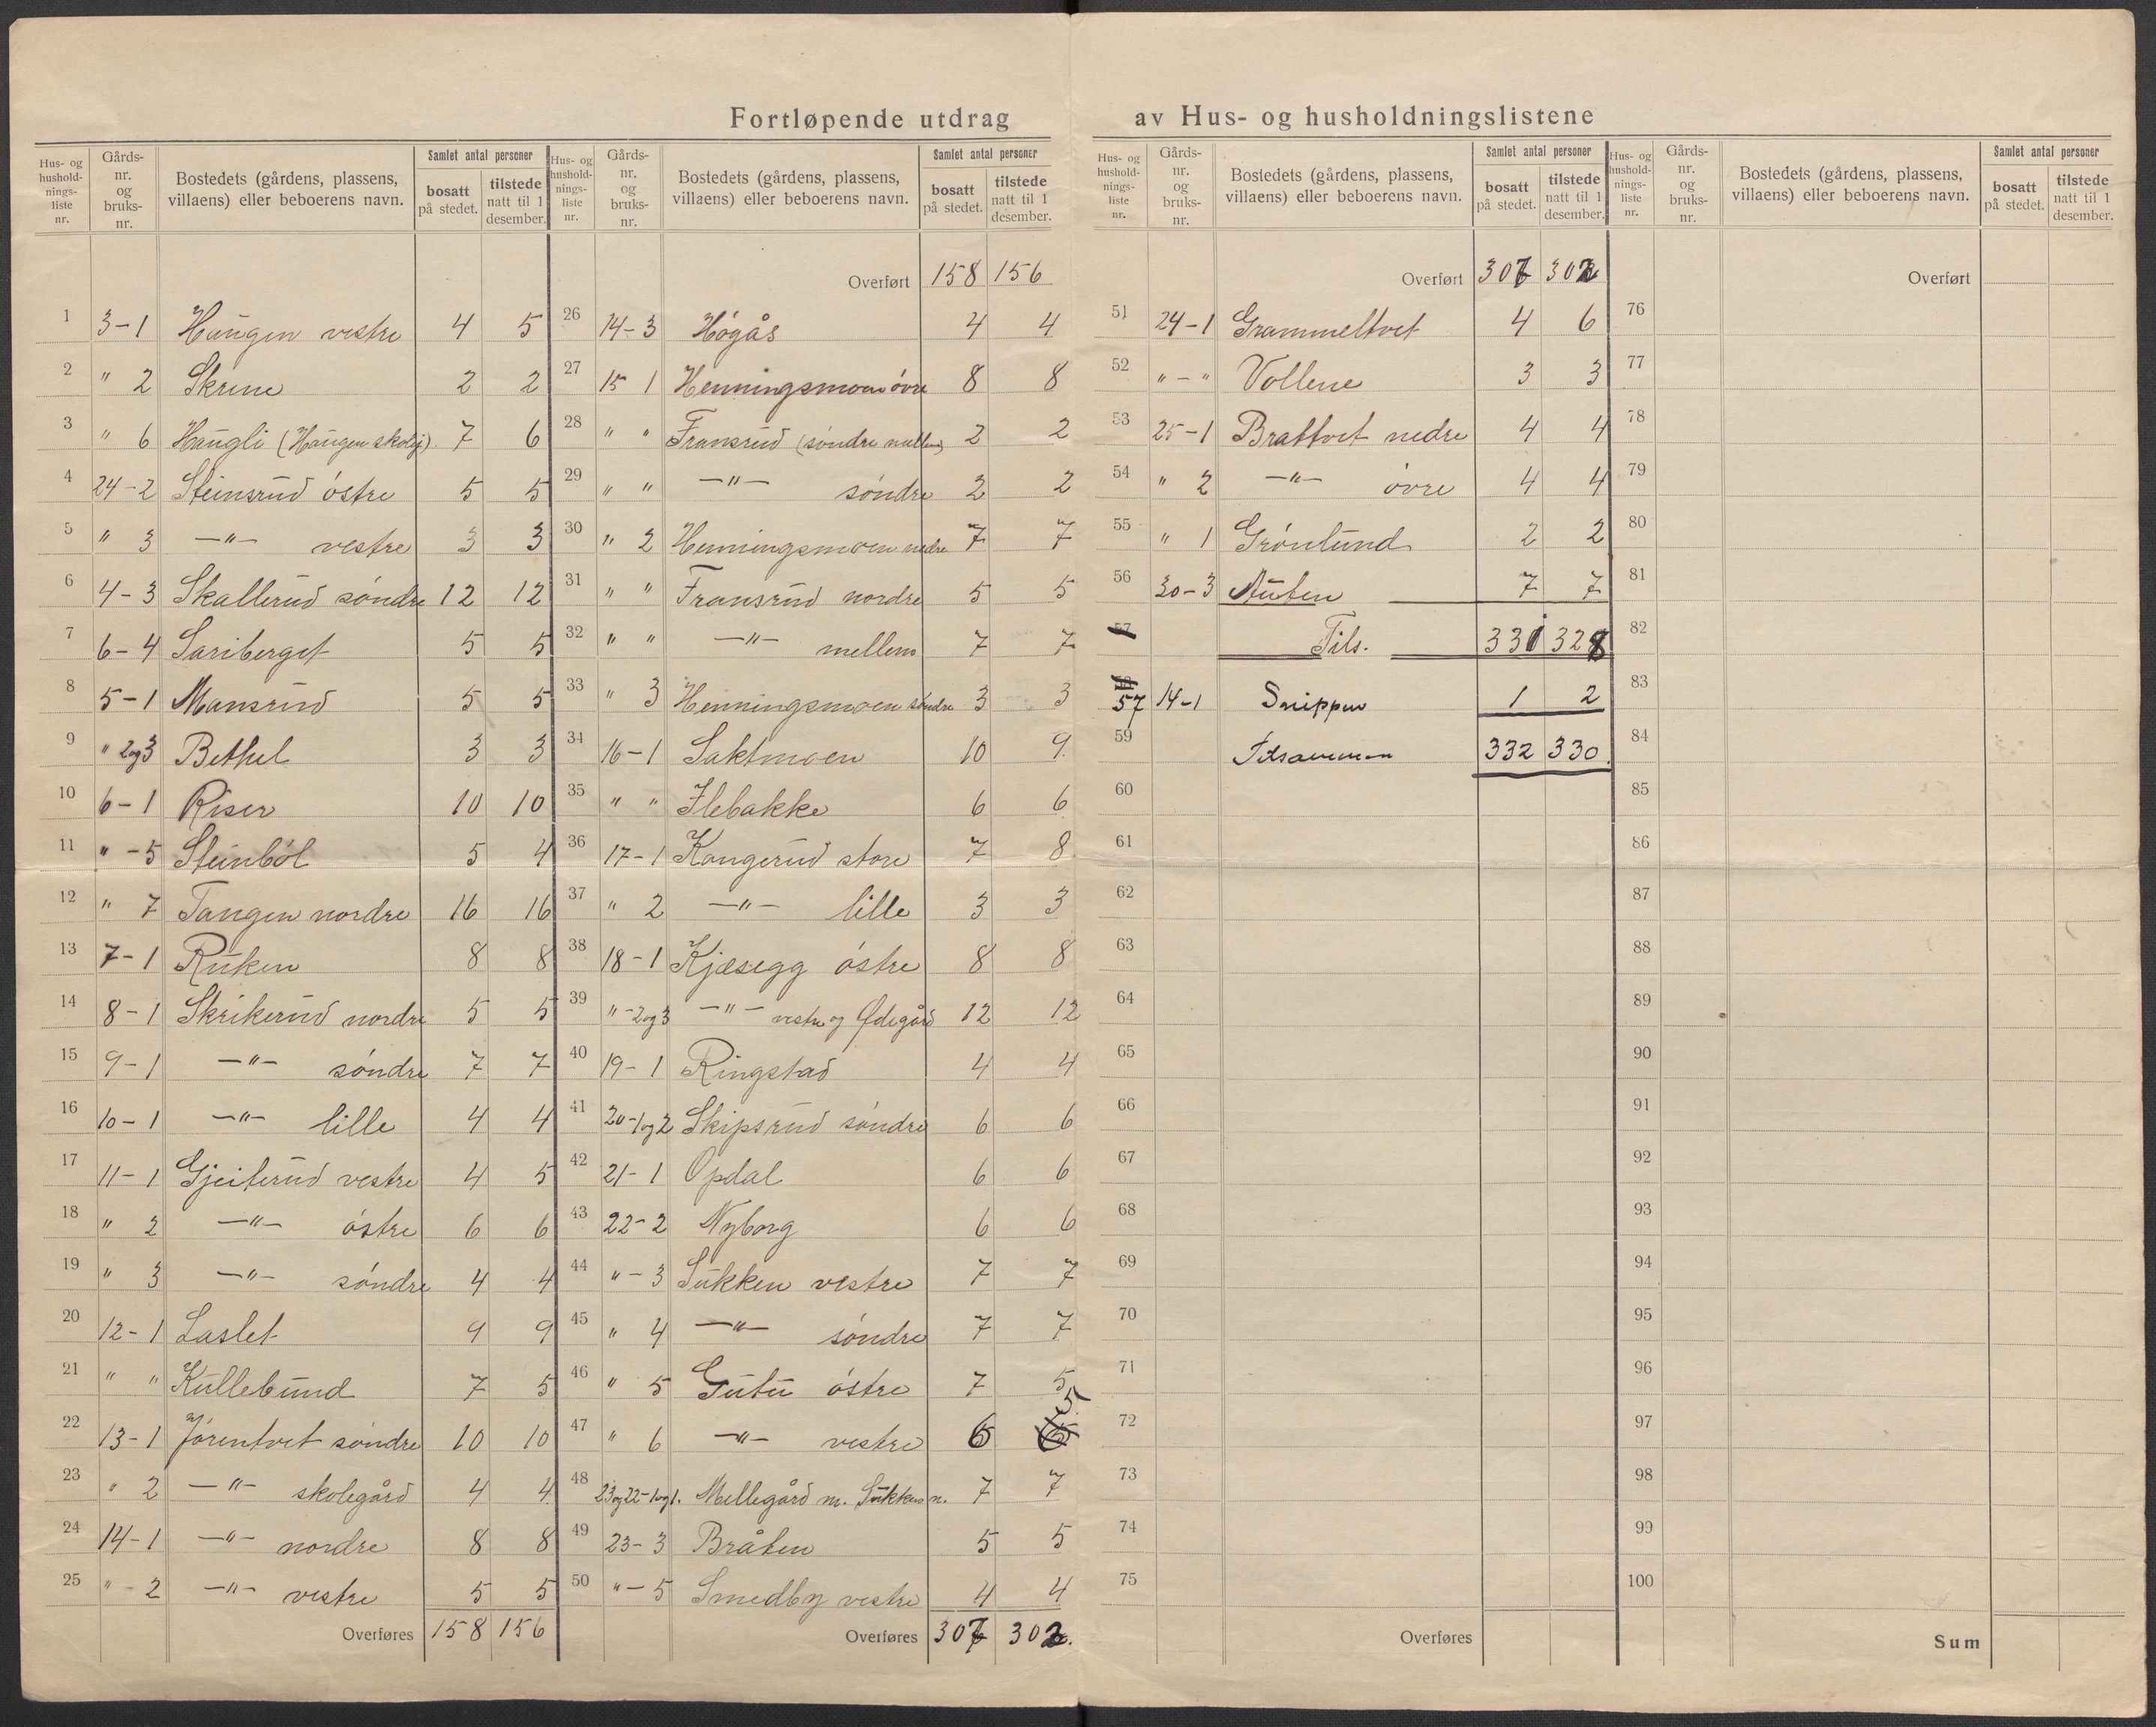 Fortløpende utdrag av Hus- og husholdningslistene
Hus- og hushold-nings-liste nr. | Gårds-nr. og bruks-nr. | Bostedets (gårdens, plassens, villaens) eller beboerens navn. | Samlet antal personer | bosatt på stedet. | tilstede natt til 1 desember.
1 3-1 Haugen vestre 4 5
2 " 2 Skrine 2 2
3 " 6 Haugli (Haugen skolej) 7 6
4 24-2 Steinsrud östre 5 5
5 " 3 —"— vestre 3 3
6 4-3 Skallerud söndre 12 12
7 6-4 Sariberget 5 5
8 5-1 Mansrud 5 5
9 " 2og3 Bethel 3 3
10 6-1 Riser 10 10
11 " -5 Steinböl 5 4
12 " 7 Tangen nordre 16 16
13 7-1 Ruken 8 8
14 8-1 Skrikerud nordre 5 5
15 9-1 —"— söndre 7 7
16 10-1 —"— lille 4 4
17 11-1 Gjeiterud vestre 4 5
18 " 2 —"— östre 6 6
19 " 3 —"— söndre 4 4
20 12-1 Laslet 9 9
21 " " Kullebund 7 5
22 13-1 Jörentvet söndre 10 10
23 " 2 —"— skolegård 4 4
24 14-1 —"— nordre 8 8
25 " -2 —"— vestre 5 5
Overføres 158 156
Hus- og hushold-nings-liste nr. | Gårds-nr. og bruks-nr. | Bostedets (gårdens, plassens, villaens) eller beboerens navn. | Samlet antal personer | bosatt på stedet. | tilstede natt til 1 desember.
Overført 158 156
26 14-3 Högås 4 4
27 15 1 Henningsmoen övre 8 8
28 " " Fransrud (söndre mellem) 2 2
29 " " —"— söndre 2 2
30 " 2 Henningsmoen nedre 7 7
31 " " Fransrud nordre 5 5
32 " " —"— mellem 7 7
33 " 3 Henningsmoen söndre 3 3
34 16-1 Saktmoen 10 9
35 " " Ilebakke 6 6
36 17-1 Kongerud store 7 8
37 " 2 —"— lille 3 3
38 18-1 Kjæsegg östre 8 8
39 " -2og3 —"— vestre og Ødegård 12 12
40 19-1 Ringstad 4 4
41 20-1og2 Skipsrud söndre 6 6
42 21-1 Opdal 6 6
43 22-2 Nyborg 6 6
44 " -3 Sukken vestre 7 7
45 " 4 —"— söndre 7 7
46 " 5 Gutu östre 7 5
47 " 6 —"— vestre 6 5
48 23og22-1og1. Mellegård m. Sukken n. 7 7
49 23-3 Bråten 5 5
50 " -5 Smedby vestre 4 4
Overføres 307 302.
Hus- og hushold-nings-liste nr. | Gårds-nr. og bruks-nr. | Bostedets (gårdens, plassens, villaens) eller beboerens navn. | Samlet antal personer | bosatt på stedet. | tilstede natt til 1 desember.
Overført 307 302
51 24-1 Grammeltvet 4 6
52 " - " Vollene 3 3
53 25-1 Brattvet nedre 4 4
54 " 2 —"— övre 4 4
55 " 1 Grönlund 2 2
56 30-3 Auten 7 7
57 Tils. 331 328
58 57 14-1 Snippen 1 2
59 Tilsammen 332 330.
60
61
62
63
64
65
66
67
68
69
70
71
72
73
74
75
Overføres
Hus- og hushold-nings-liste nr. | Gårds-nr. og bruks-nr. | Bostedets (gårdens, plassens, villaens) eller beboerens navn. | Samlet antal personer | bosatt på stedet. | tilstede natt til 1 desember.
Overført
76
77
78
79
80
81
82
83
84
85
86
87
88
89
90
91
92
93
94
95
96
97
98
99
100
Sum